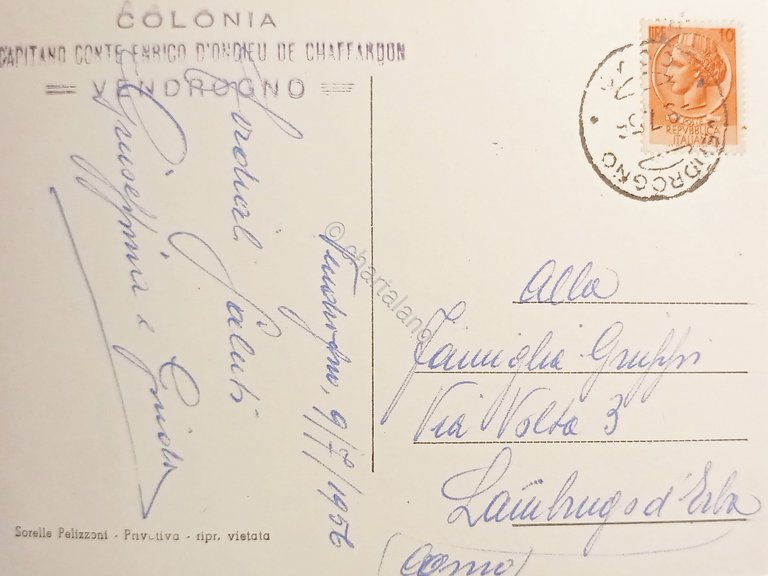 COLONIA
CAPITANO CONTE ENRICO D'ONDIEU DE CHAFFARDON
VENDROGNO
Cordiali Saluti
Giuseppina e Guido
Vendrogno, 9/7/1956
10
REPVBBLICA
ITALIANA
VENDROGNO
Alla
Famiglia Gruppi
Via Volta 3
Lambrugo d'Erba
(Como)
Sorelle Pelizzoni - Privativa - ripr. vietata
© chartaland